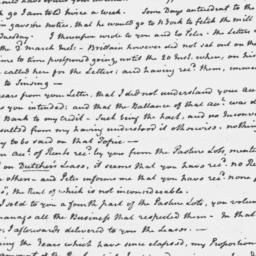 go I am told twice a week. Some Days antecedent to the
gave notice, that he would go to York to fetch the Mill
day. I thereupon wrote to you & to Peter - the letter
the 2d March Inst - Brittain however did not set out on the
time to time postponed going, until the 20 Inst. when, on his
called here for the Letters; and having recd them,
to Sinsing —
from your letter, that I did not understand your
you intended; and that the Ballance of that acct was
Bank to my credit - Such being the fact, and no Incon
resulted from my having understood it otherwise, nothing
to be said on that Topic —
acct of Rents recd by you from the Pasture Lots,
on Dutcher's Lease, it seems that you have recd no Re
other - and Peter informs me that you have recd none
the Rent of which is not inconsiderable.
sold to you a fourth part of the Pasture Lots, you
manage all the Business that respected them - In that
I afterwards delivered to you the Leases. —
the Years which have since elapsed, my Proportion